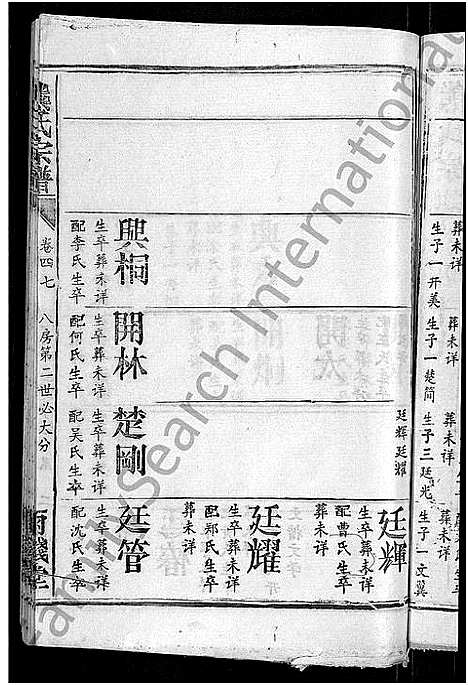 葬未詳
生子一開美
葬未詳
生子一楚簡
葬未詳
生子三廷光
葬未詳
生子一文翼
廷輝廷耀
廷輝
生卒葬未詳
配曹氏生卒
葬未詳
廷耀
生卒葬未詳
配鄭氏生卒
葬未詳
興桐
生卒葬未詳
配李氏生卒
開林
生卒葬未詳
配何氏生卒
楚剛
生卒葬未詳
配吴氏生卒
廷管
生卒葬未詳
配沈氏生卒
氏宗譜
卷四七
八房第二世必大分
FamilySearch International